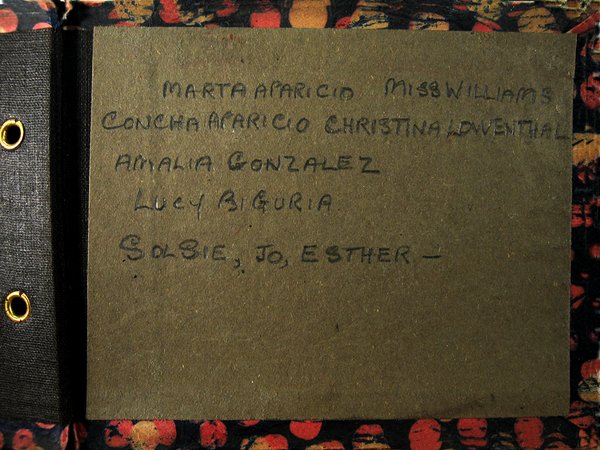 MARTA APARICIO MISS WILLIAMS
CONCHA APARICIO CHRISTINA LOWENTHAL
AMALIA GONZALEZ
LUCY BIGURIA
SOLSIE, JO, ESTHER —